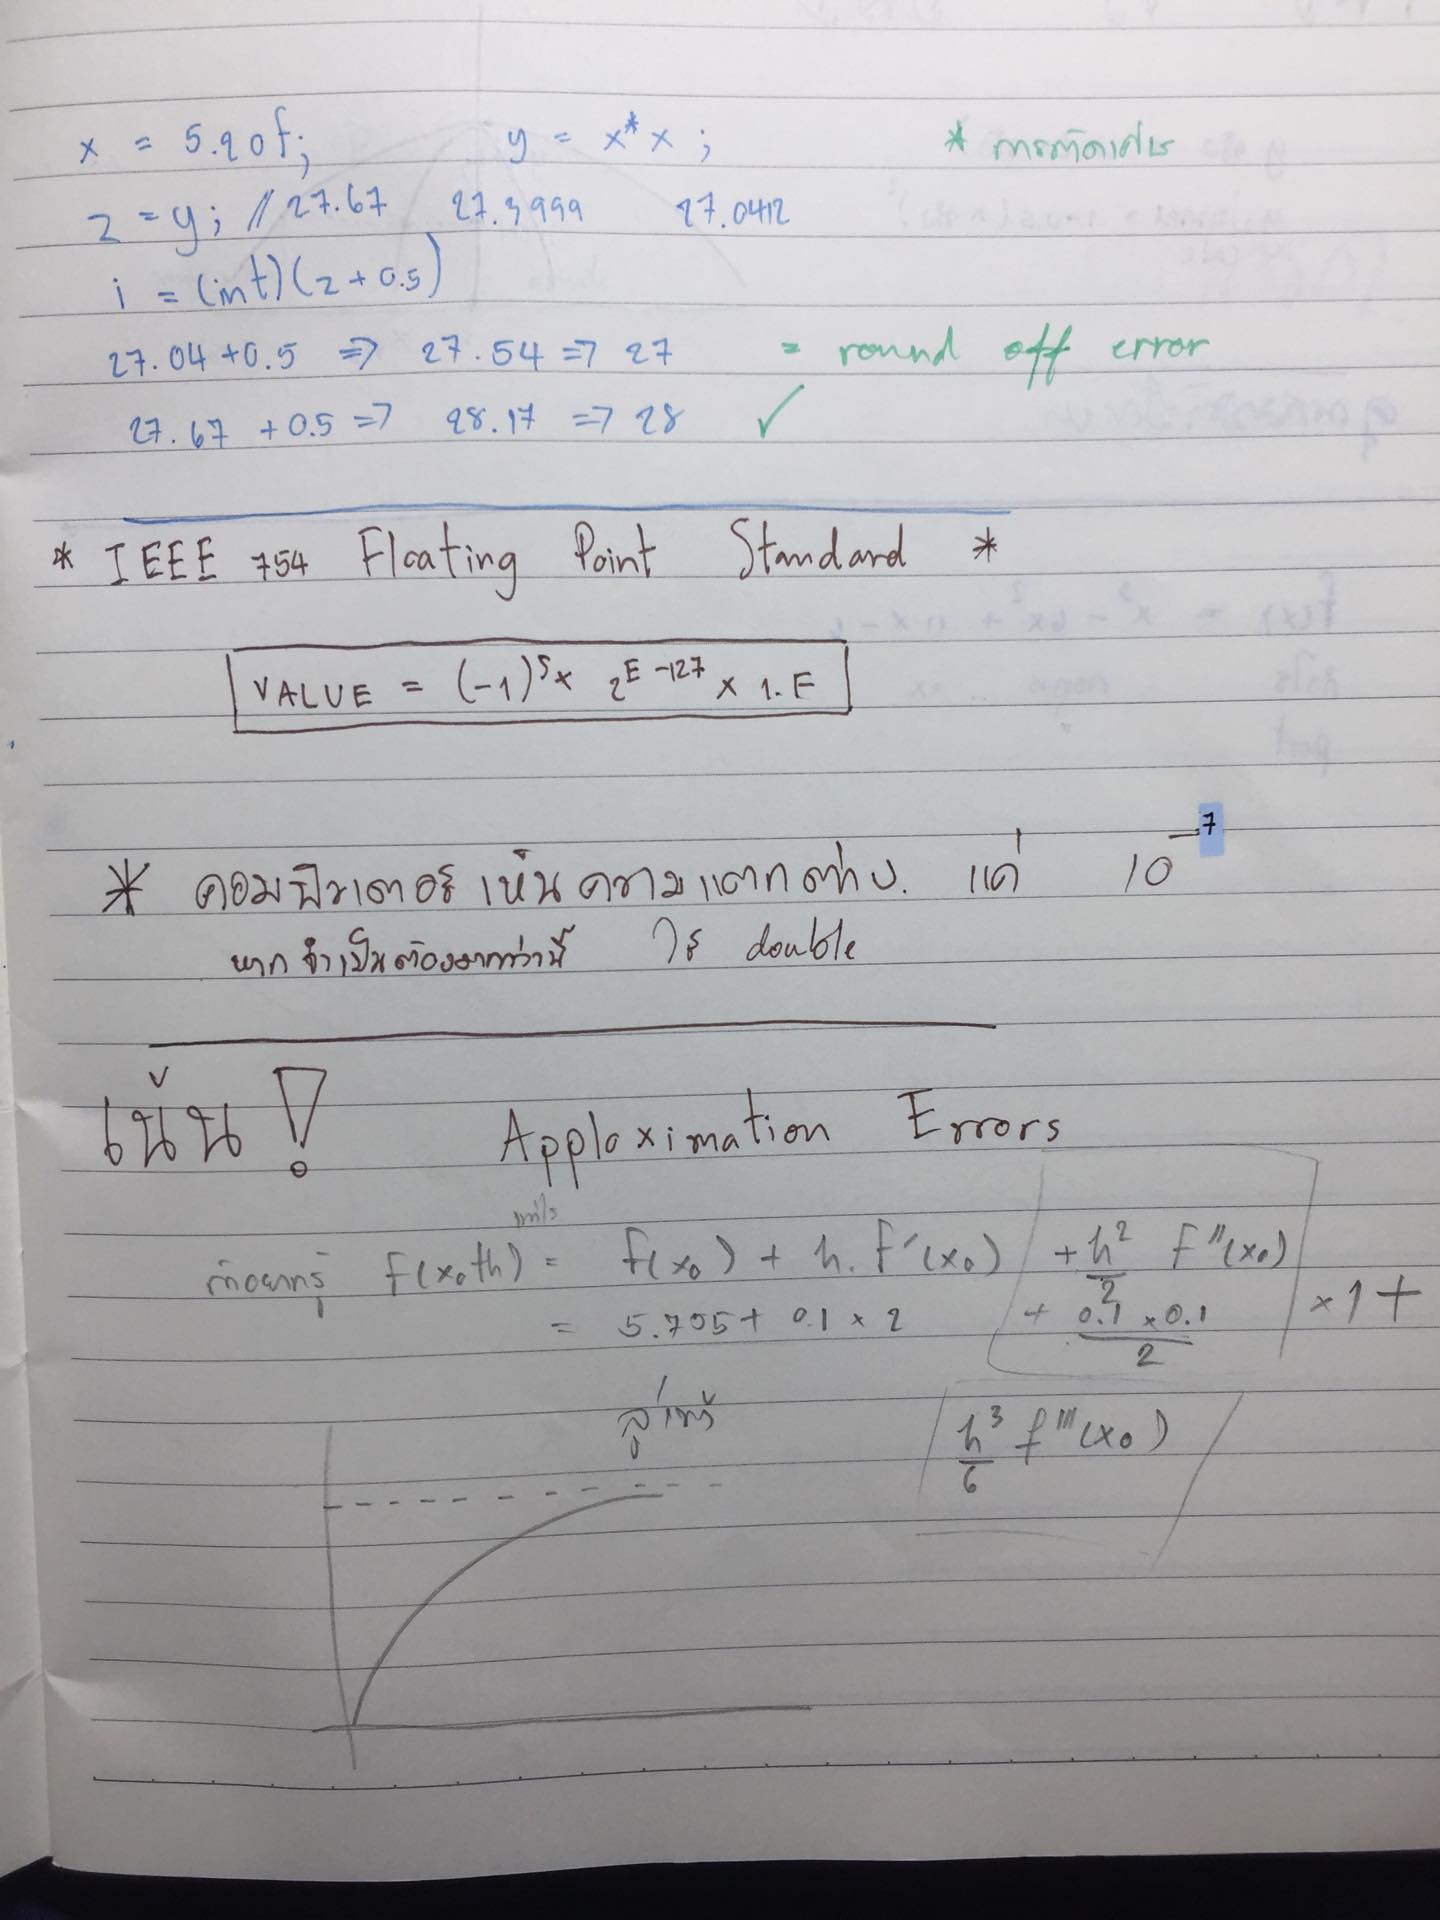 x = 5.20f; y = x*x; * การตัดเศษ
z = y; // 27.67 27.3999 27.0412
i = (int)(z + 0.5)
27.04 + 0.5 => 27.54 => 27 = round off error
27.67 + 0.5 => 28.17 => 28 ✓
* IEEE 754 Floating Point Standard *
VALUE = (-1)^S × 2^(E-127) × 1.F
* คอมพิวเตอร์เห็นความแตกต่าง. แค่ 10^-7
หากจำเป็นต้องมากกว่านี้ ใช้ double
เน้น! Apploximation Errors
ถ้าอยากรู้ f(x₀+h) = f(x₀) + h.f'(x₀) + h²/2 f''(x₀)
= 5.705 + 0.1 × 2 + 0.1 × 0.1/2 × 1 +
ลู่เข้า h³/6 f'''(x₀)